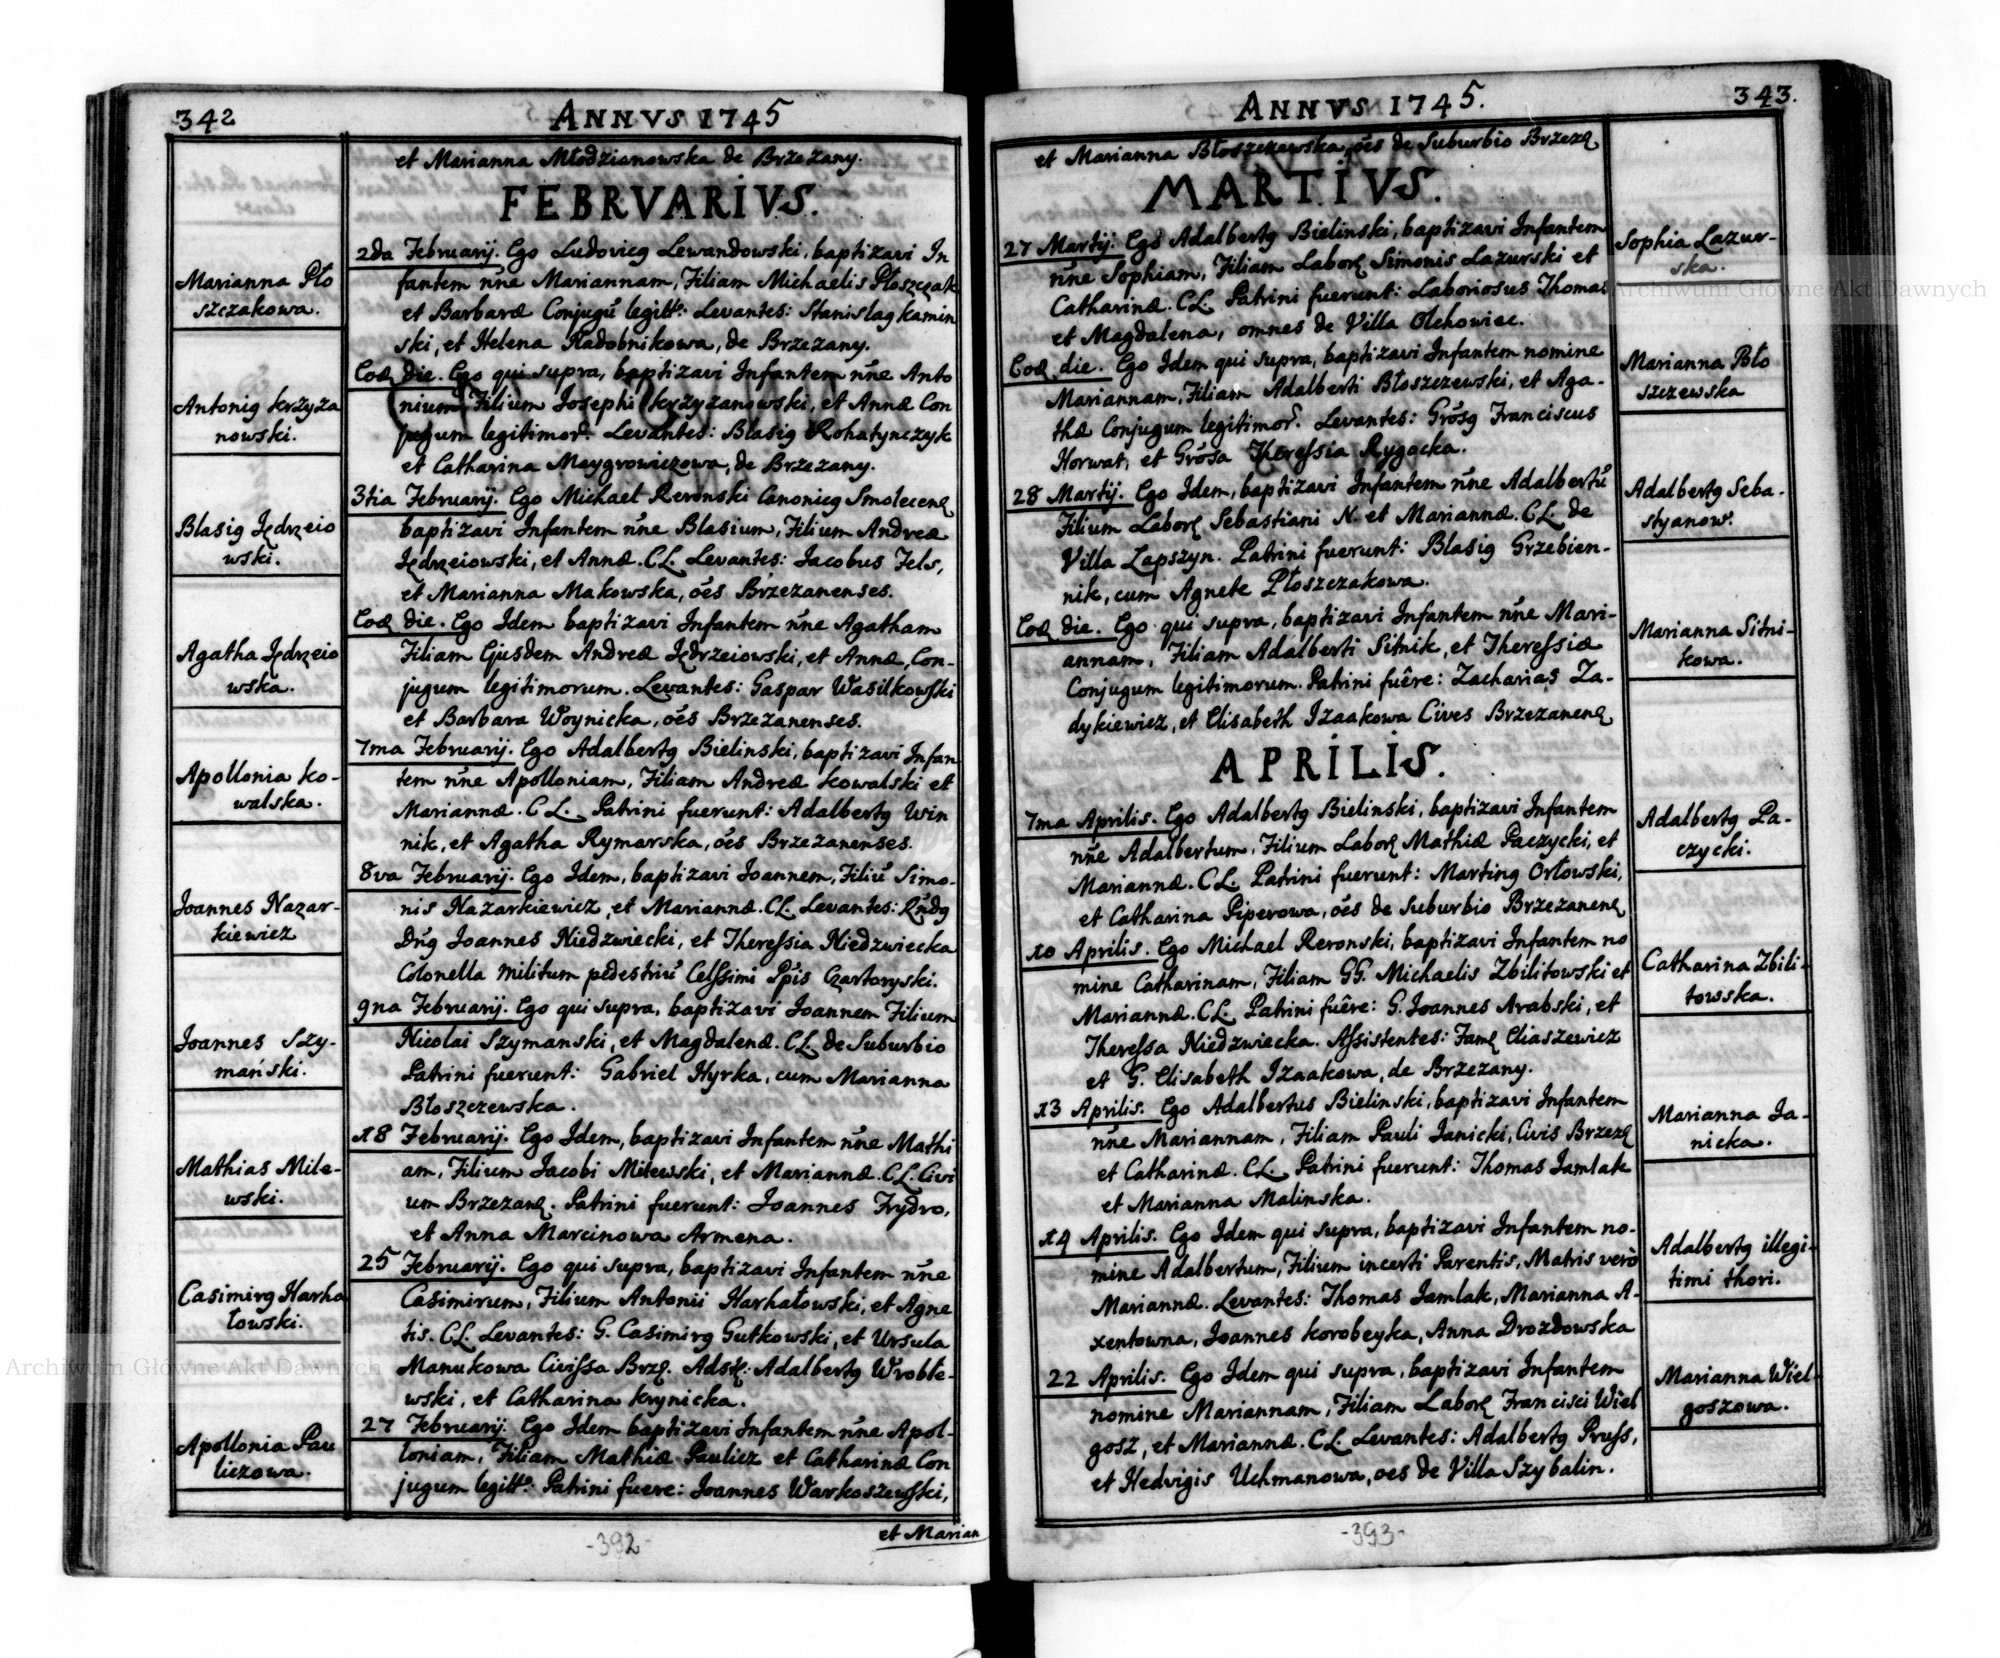 342
ANNVS 1745
et Marianna Młodzianowska de Brzezany.
FEBRVARIVS.
Marianna Pło
szczakowa.
2da Februarij. Ego Ludovicꝯ Lewandowski, baptizavi In
fantem nñe Mariannam, Filiam Michaelis Płoszczak
et Barbaræ Conjugũ legitt: Levantes: Stanislaꝯ Kamin
ski, et Helena Radobnikowa, de Brzezany.
Antoniꝯ Krzyża
nowski.
Eođ die. Ego qui supra, baptizavi Infantem nñe Anto
nium, Filium Josephi Krzyzanowski, et Annæ Con
jugum legitimor. Levantes: Blasiꝯ Rohatynczyk
et Catharina Maygrowiczowa, de Brzezany.
Blasiꝯ Jędrzeio
wski.
3tia Februarij. Ego Michael Reronski Canonicꝯ Smolecenꝭ
baptizavi Infantem nñe Blasium, Filium Andreæ
Jędrzeiowski, et Annæ. CL. Levantes: Jacobus Fels,
et Marianna Makowska, oẽs Brzezanenses.
Agatha Jędrzeio
wska.
Eođ die. Ego Idem baptizavi Infantem nñe Agatham
Filiam Ejusdem Andreæ Jędrzeiowski, et Annæ, Con-
jugum legitimorum. Levantes: Gaspar Wasilkowski
et Barbara Woynicka, oẽs Brzezanenses.
Apollonia Ko-
walska.
7ma Februarij. Ego Adalbertꝯ Bielinski, baptizavi Infan
tem nñe Apolloniam, Filiam Andreæ Kowalski et
Mariannæ. CL. Patrini fuerunt: Adalbertꝯ Win
nik, et Agatha Rymarska, oẽs Brzezanenses.
Joannes Nazar-
kiewicz
8va Februarij. Ego Idem, baptizavi Joannem, Filiũ Simo-
nis Nazarkiewicz, et Mariannæ. CL. Levantes: Rñdꝯ
Dñꝯ Joannes Niedzwiecki, et Theressia Niedzwiecka
Colonella militum pedestriũ Celssimi Ppis Czartoryski.
Joannes Szy-
mański.
9na Februarij. Ego qui supra, baptizavi Joannem Filium
Nicolai Szymanski, et Magdalenæ. CL. de Suburbio
Patrini fuerunt: Gabriel Hyrka, cum Marianna
Błoszczewska.
Mathias Mile-
wski.
18 Februarij. Ego Idem, baptizavi Infantem nñe Mathi
am, Filium Jacobi Milewski, et Mariannæ. CL. Civi
um Brzezanꝭ. Patrini fuerunt: Joannes Frydro,
et Anna Marcinowa Armena.
Casimirꝯ Harha
łowski.
25 Februarij. Ego qui supra, baptizavi Infantem nñe
Casimirum, Filium Antonii Harhałowski, et Agne
tis. CL. Levantes: G. Casimirꝯ Gutkowski, et Ursula
Manukowa Civissa Brzꝭ. Adstꝭ: Adalbertꝯ Wroble-
wski, et Catharina Krynicka.
Apollonia Pau
liczowa.
27 Februarij. Ego Idem baptizavi Infantem nñe Apol-
loniam, Filiam Mathiæ Paulicz et Catharinæ Con
jugum legitt: Patrini fuere: Joannes Warkoszewski,
et Marian
-392-
343.
ANNVS 1745.
et Marianna Błoszczewska, oẽs de Suburbio Brzezꝭ
MARTIVS.
27 Martij. Ego Adalbertꝯ Bielinski, baptizavi Infantem
nñe Sophiam, Filiam Laborꝭ Simonis Lazurski et
Catharinæ. CL. Patrini fuerunt: Laboriosus Thomas
et Magdalena, omnes de Villa Olchowiec.
Sophia Lazur-
ska.
Eođ die. Ego Idem qui supra, baptizavi Infantem nomine
Mariannam, Filiam Adalberti Błoszczewski, et Aga-
thæ Conjugum legitimor. Levantes: Grõsꝯ Franciscus
Horwat, et Grõsa Theressia Rygocka.
Marianna Bło
szczewska
28 Martij. Ego Idem, baptizavi Infantem nñe Adalbertũ
Filium Laborꝭ Sebastiani N. et Mariannæ. CL. de
Villa Lapszyn. Patrini fuerunt: Blasiꝯ Grzebien-
nik, cum Agnete Płoszczakowa.
Adalbertꝯ Seba-
styanow.
Eođ die. Ego qui supra, baptizavi Infantem nñe Mari-
annam, Filiam Adalberti Sitnik, et Theressiæ
Conjugum legitimorum. Patrini fuêre: Zacharias Za-
dykiewicz, et Elisabeth Izaakowa Cives Brzezanenꝭ
Marianna Sitni-
kowa.
APRILIS.
7ma Aprilis. Ego Adalbertꝯ Bielinski, baptizavi Infantem
nñe Adalbertum, Filium Laborꝭ Mathiæ Paczycki, et
Mariannæ. CL. Patrini fuerunt: Martinꝯ Orłowski,
et Catharina Piperowa, oẽs de Suburbio Brzezanenꝭ
Adalbertꝯ Pa-
czycki.
10 Aprilis. Ego Michael Reronski, baptizavi Infantem no
mine Catharinam, Filiam GG. Michaelis Zbilitowski et
Mariannæ. CL. Patrini fuêre: G. Joannes Arabski, et
Theressa Niedzwiecka. Assistentes: Famꝭ Eliaszewicz
et G. Elisabeth Izaakowa, de Brzezany.
Catharina Zbili-
towsska.
13 Aprilis. Ego Adalbertus Bielinski, baptizavi Infantem
nñe Mariannam, Filiam Pauli Janicki, Civis Brzezꝭ
et Catharinæ. CL. Patrini fuerunt: Thomas Jamlak
et Marianna Malinska.
Marianna Ja-
nicka.
14 Aprilis. Ego Idem qui supra, baptizavi Infantem no-
mine Adalbertum, Filium incerti Parentis, Matris verò
Mariannæ. Levantes: Thomas Jamlak, Marianna A-
xentowna, Joannes Korobeyka, Anna Drozdowska
Adalbertꝯ illegi-
timi thori.
22 Aprilis. Ego Idem qui supra, baptizavi Infantem
nomine Mariannam, Filiam Laborꝭ Francisci Wiel
gosz, et Mariannæ. CL. Levantes: Adalbertꝯ Pruss,
et Hedvigis Uchmanowa, oes de Villa Szybalin.
Marianna Wiel-
goszowa.
-393-
Archiwum Główne Akt Dawnych
Archiwum Główne Akt Dawnych